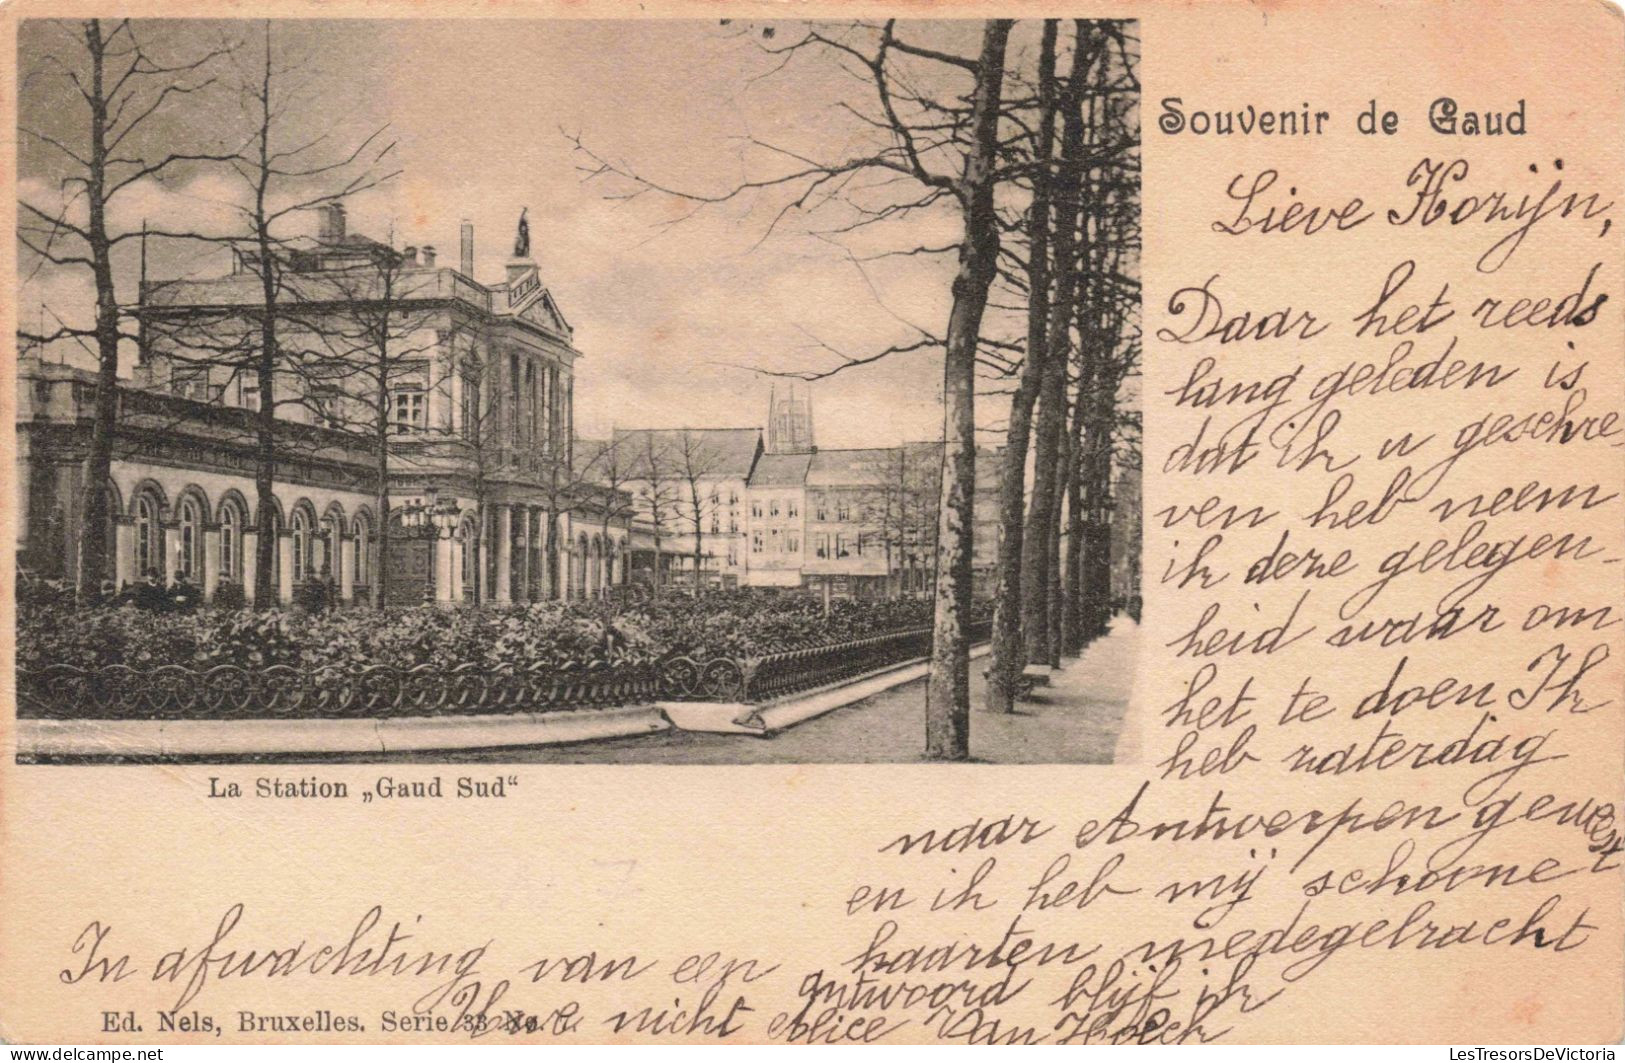 Souvenir de Gaud
Lieve Kozijn,
Daar het reeds
lang geleden is
dat ik u geschre-
ven heb neem
ik deze gelegen-
heid waar om
het te doen Ik
heb zaterdag
naar Antwerpen geweest
en ik heb mij schoone
kaarten medegebracht
La Station „Gaud Sud“
In afwachting van een antwoord blijf ik
Uwe nicht Alice Van Hoeck
Ed. Nels, Bruxelles. Serie 33 No.
LesTresorsDeVictoria